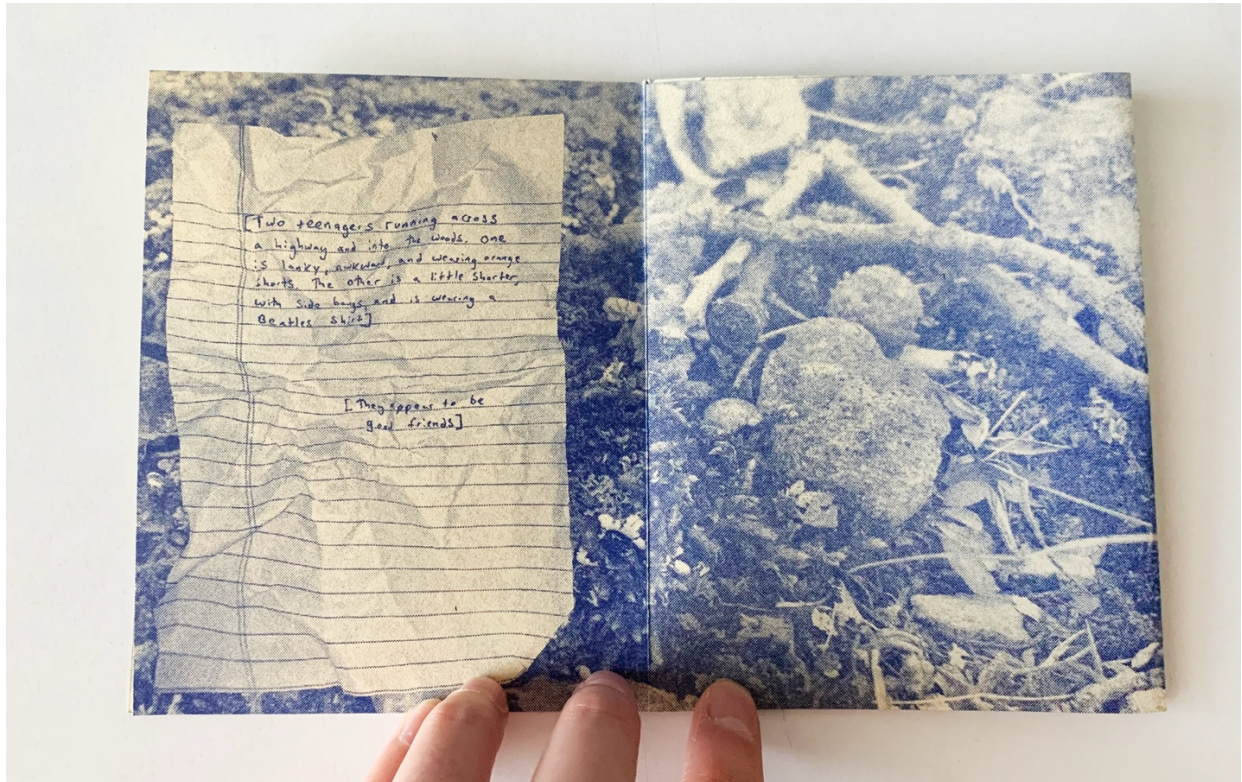 [Two teenagers running across
a highway and into the woods. One
is lanky, awkward, and wearing orange
shorts. The other is a little shorter,
with side bangs and is wearing a
Beatles shirt]
[They appear to be
good friends]